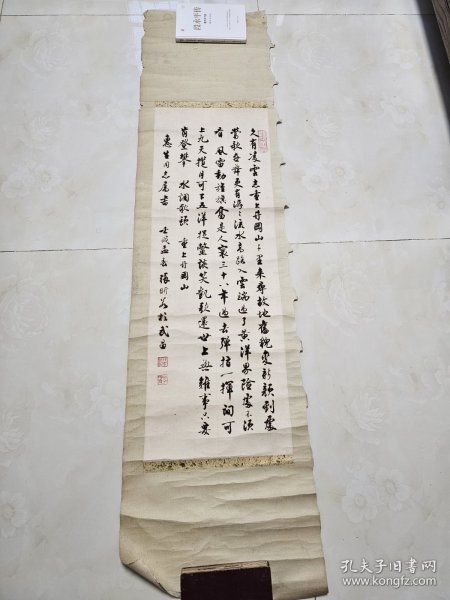 久有凌雲志重上井岡山千里來尋故地舊貌變新顏到處
鶯歌燕舞更有潺潺流水高路入雲端過了黃洋界險處不須
看風雷動旌旗奮是人寰三十八年過去彈指一揮間可
上九天攬月可下五洋捉鱉談笑凱歌還世上無難事只要
肯登攀 水調歌頭 重上井岡山
惠生同志屬書
壬戌孟春張昕若於武昌
孔夫子旧书网
www.kongfz.com